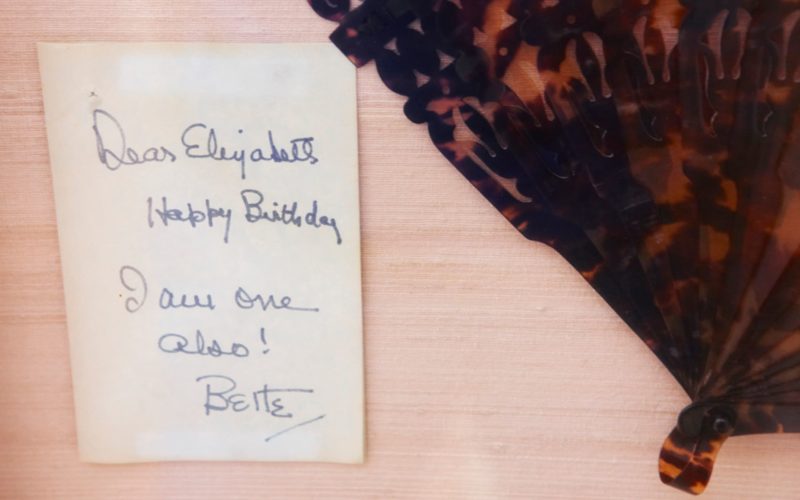 Dear Elizabeth
Happy Birthday
I am one
also!
Bette